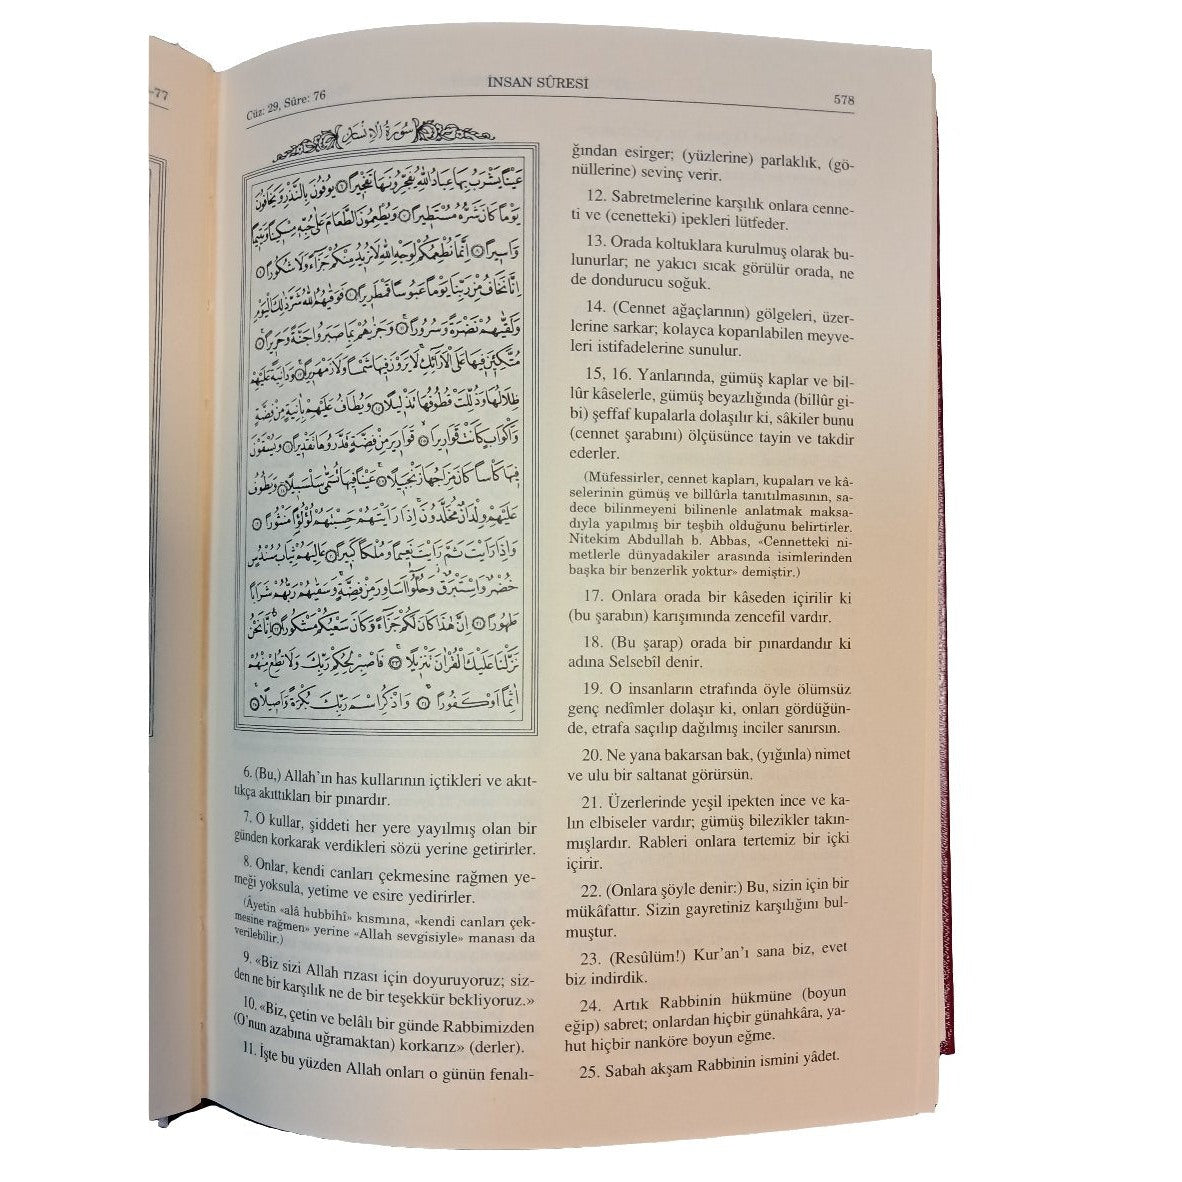 -77
Cüz: 29, Sûre: 76
İNSAN SÛRESİ
578
سُورَةُ الْاِنْسَانِ
عَيْنًا يَشْرَبُ بِهَا عِبَادُ اللّٰهِ يُفَجِّرُونَهَا تَفْجِيرًا ﴿٦﴾ يُوفُونَ بِالنَّذْرِ وَيَخَافُونَ
يَوْمًا كَانَ شَرُّهُ مُسْتَطِيرًا ﴿٧﴾ وَيُطْعِمُونَ الطَّعَامَ عَلٰى حُبِّهِ مِسْكِينًا وَيَتِيمًا
وَاَسِيرًا ﴿٨﴾ اِنَّمَا نُطْعِمُكُمْ لِوَجْهِ اللّٰهِ لَا نُرِيدُ مِنْكُمْ جَزَاءً وَلَا شُكُورًا ﴿٩﴾
اِنَّا نَخَافُ مِنْ رَبِّنَا يَوْمًا عَبُوسًا قَمْطَرِيرًا ﴿١٠﴾ فَوَقٰيهُمُ اللّٰهُ شَرَّ ذٰلِكَ الْيَوْمِ
وَلَقّٰيهُمْ نَضْرَةً وَسُرُورًا ﴿١١﴾ وَجَزٰيهُمْ بِمَا صَبَرُوا جَنَّةً وَحَرِيرًا ﴿١٢﴾
مُتَّكِـِٔينَ فِيهَا عَلَى الْاَرَائِكِ لَا يَرَوْنَ فِيهَا شَمْسًا وَلَا زَمْهَرِيرًا ﴿١٣﴾ وَدَانِيَةً عَلَيْهِمْ
ظِلَالُهَا وَذُلِّلَتْ قُطُوفُهَا تَذْلِيلًا ﴿١٤﴾ وَيُطَافُ عَلَيْهِمْ بِاٰنِيَةٍ مِنْ فِضَّةٍ
وَاَكْوَابٍ كَانَتْ قَوَارِيرَا ﴿١٥﴾ قَوَارِيرَ مِنْ فِضَّةٍ قَدَّرُوهَا تَقْدِيرًا ﴿١٦﴾ وَيُسْقَوْنَ
فِيهَا كَأْسًا كَانَ مِزَاجُهَا زَنْجَبِيلًا ﴿١٧﴾ عَيْنًا فِيهَا تُسَمّٰى سَلْسَبِيلًا ﴿١٨﴾ وَيَطُوفُ
عَلَيْهِمْ وِلْدَانٌ مُخَلَّدُونَ اِذَا رَاَيْتَهُمْ حَسِبْتَهُمْ لُؤْلُؤًا مَنْثُورًا ﴿١٩﴾
وَاِذَا رَاَيْتَ ثَمَّ رَاَيْتَ نَعِيمًا وَمُلْكًا كَبِيرًا ﴿٢٠﴾ عَالِيَهُمْ ثِيَابُ سُنْدُسٍ
خُضْرٌ وَاِسْتَبْرَقٌ وَحُلُّوا اَسَاوِرَ مِنْ فِضَّةٍ وَسَقٰيهُمْ رَبُّهُمْ شَرَابًا
طَهُورًا ﴿٢١﴾ اِنَّ هٰذَا كَانَ لَكُمْ جَزَاءً وَكَانَ سَعْيُكُمْ مَشْكُورًا ﴿٢٢﴾ اِنَّا نَحْنُ
نَزَّلْنَا عَلَيْكَ الْقُرْاٰنَ تَنْزِيلًا ﴿٢٣﴾ فَاصْبِرْ لِحُكْمِ رَبِّكَ وَلَا تُطِعْ مِنْهُمْ
اٰثِمًا اَوْ كَفُورًا ﴿٢٤﴾ وَاذْكُرِ اسْمَ رَبِّكَ بُكْرَةً وَاَصِيلًا ﴿٢٥﴾
6. (Bu,) Allah'ın has kullarının içtikleri ve akıt-
tıkça akıttıkları bir pınardır.
7. O kullar, şiddeti her yere yayılmış olan bir
günden korkarak verdikleri sözü yerine getirirler.
8. Onlar, kendi canları çekmesine rağmen ye-
meği yoksula, yetime ve esire yedirirler.
(Âyetin «alâ hubbihî» kısmına, «kendi canları çek-
mesine rağmen» yerine «Allah sevgisiyle» manası da
verilebilir.)
9. «Biz sizi Allah rızası için doyuruyoruz; siz-
den ne bir karşılık ne de bir teşekkür bekliyoruz.»
10. «Biz, çetin ve belâlı bir günde Rabbimizden
(O'nun azabına uğramaktan) korkarız» (derler).
11. İşte bu yüzden Allah onları o günün fenalı-
ğından esirger; (yüzlerine) parlaklık, (gö-
nüllerine) sevinç verir.
12. Sabretmelerine karşılık onlara cenne-
ti ve (cennetteki) ipekleri lütfeder.
13. Orada koltuklara kurulmuş olarak bu-
lunurlar; ne yakıcı sıcak görülür orada, ne
de dondurucu soğuk.
14. (Cennet ağaçlarının) gölgeleri, üzer-
lerine sarkar; kolayca koparılabilen meyve-
leri istifadelerine sunulur.
15, 16. Yanlarında, gümüş kaplar ve bil-
lûr kâselerle, gümüş beyazlığında (billûr gi-
bi) şeffaf kupalarla dolaşılır ki, sâkiler bunu
(cennet şarabını) ölçüsünce tayin ve takdir
ederler.
(Müfessirler, cennet kapları, kupaları ve kâ-
selerinin gümüş ve billûrla tanıtılmasının, sa-
dece bilinmeyeni bilinenle anlatmak maksa-
dıyla yapılmış bir teşbih olduğunu belirtirler.
Nitekim Abdullah b. Abbas, «Cennetteki ni-
metlerle dünyadakiler arasında isimlerinden
başka bir benzerlik yoktur» demiştir.)
17. Onlara orada bir kâseden içirilir ki
(bu şarabın) karışımında zencefil vardır.
18. (Bu şarap) orada bir pınardandır ki
adına Selsebîl denir.
19. O insanların etrafında öyle ölümsüz
genç nedîmler dolaşır ki, onları gördüğün-
de, etrafa saçılıp dağılmış inciler sanırsın.
20. Ne yana bakarsan bak, (yığınla) nimet
ve ulu bir saltanat görürsün.
21. Üzerlerinde yeşil ipekten ince ve ka-
lın elbiseler vardır; gümüş bilezikler takın-
mışlardır. Rableri onlara tertemiz bir içki
içirir.
22. (Onlara şöyle denir:) Bu, sizin için bir
mükâfattır. Sizin gayretiniz karşılığını bul-
muştur.
23. (Resûlüm!) Kur'an'ı sana biz, evet
biz indirdik.
24. Artık Rabbinin hükmüne (boyun
eğip) sabret; onlardan hiçbir günahkâra, ya-
hut hiçbir nanköre boyun eğme.
25. Sabah akşam Rabbinin ismini yâdet.